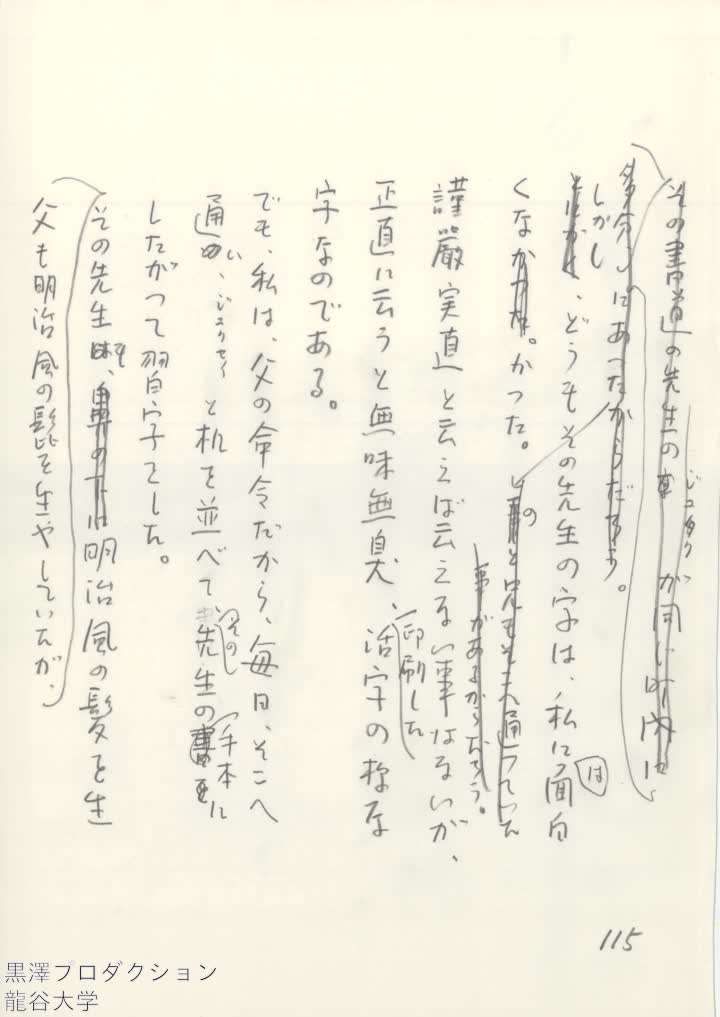 その書道の先生の ジュタク が同じ町内に
多分にあったからだろう。
しかし、どうもその先生の字は、私には面白
くなかった。かった。
の と兄もそこへ通っていた
事があるからだろう。
謹厳実直と云えば云えない事はないが、
正直に云うと無味無臭、印刷した活字の様な
字なのである。
でも、私は、父の命令だから、毎日、そこへ
通い、ジュクセイと机を並べて、その先生の手本に
したがって習字をした。
その先生も、鼻の下に明治風の髪を生
父も明治風の髭を生やしていたが、
115
黒澤プロダクション
龍谷大学